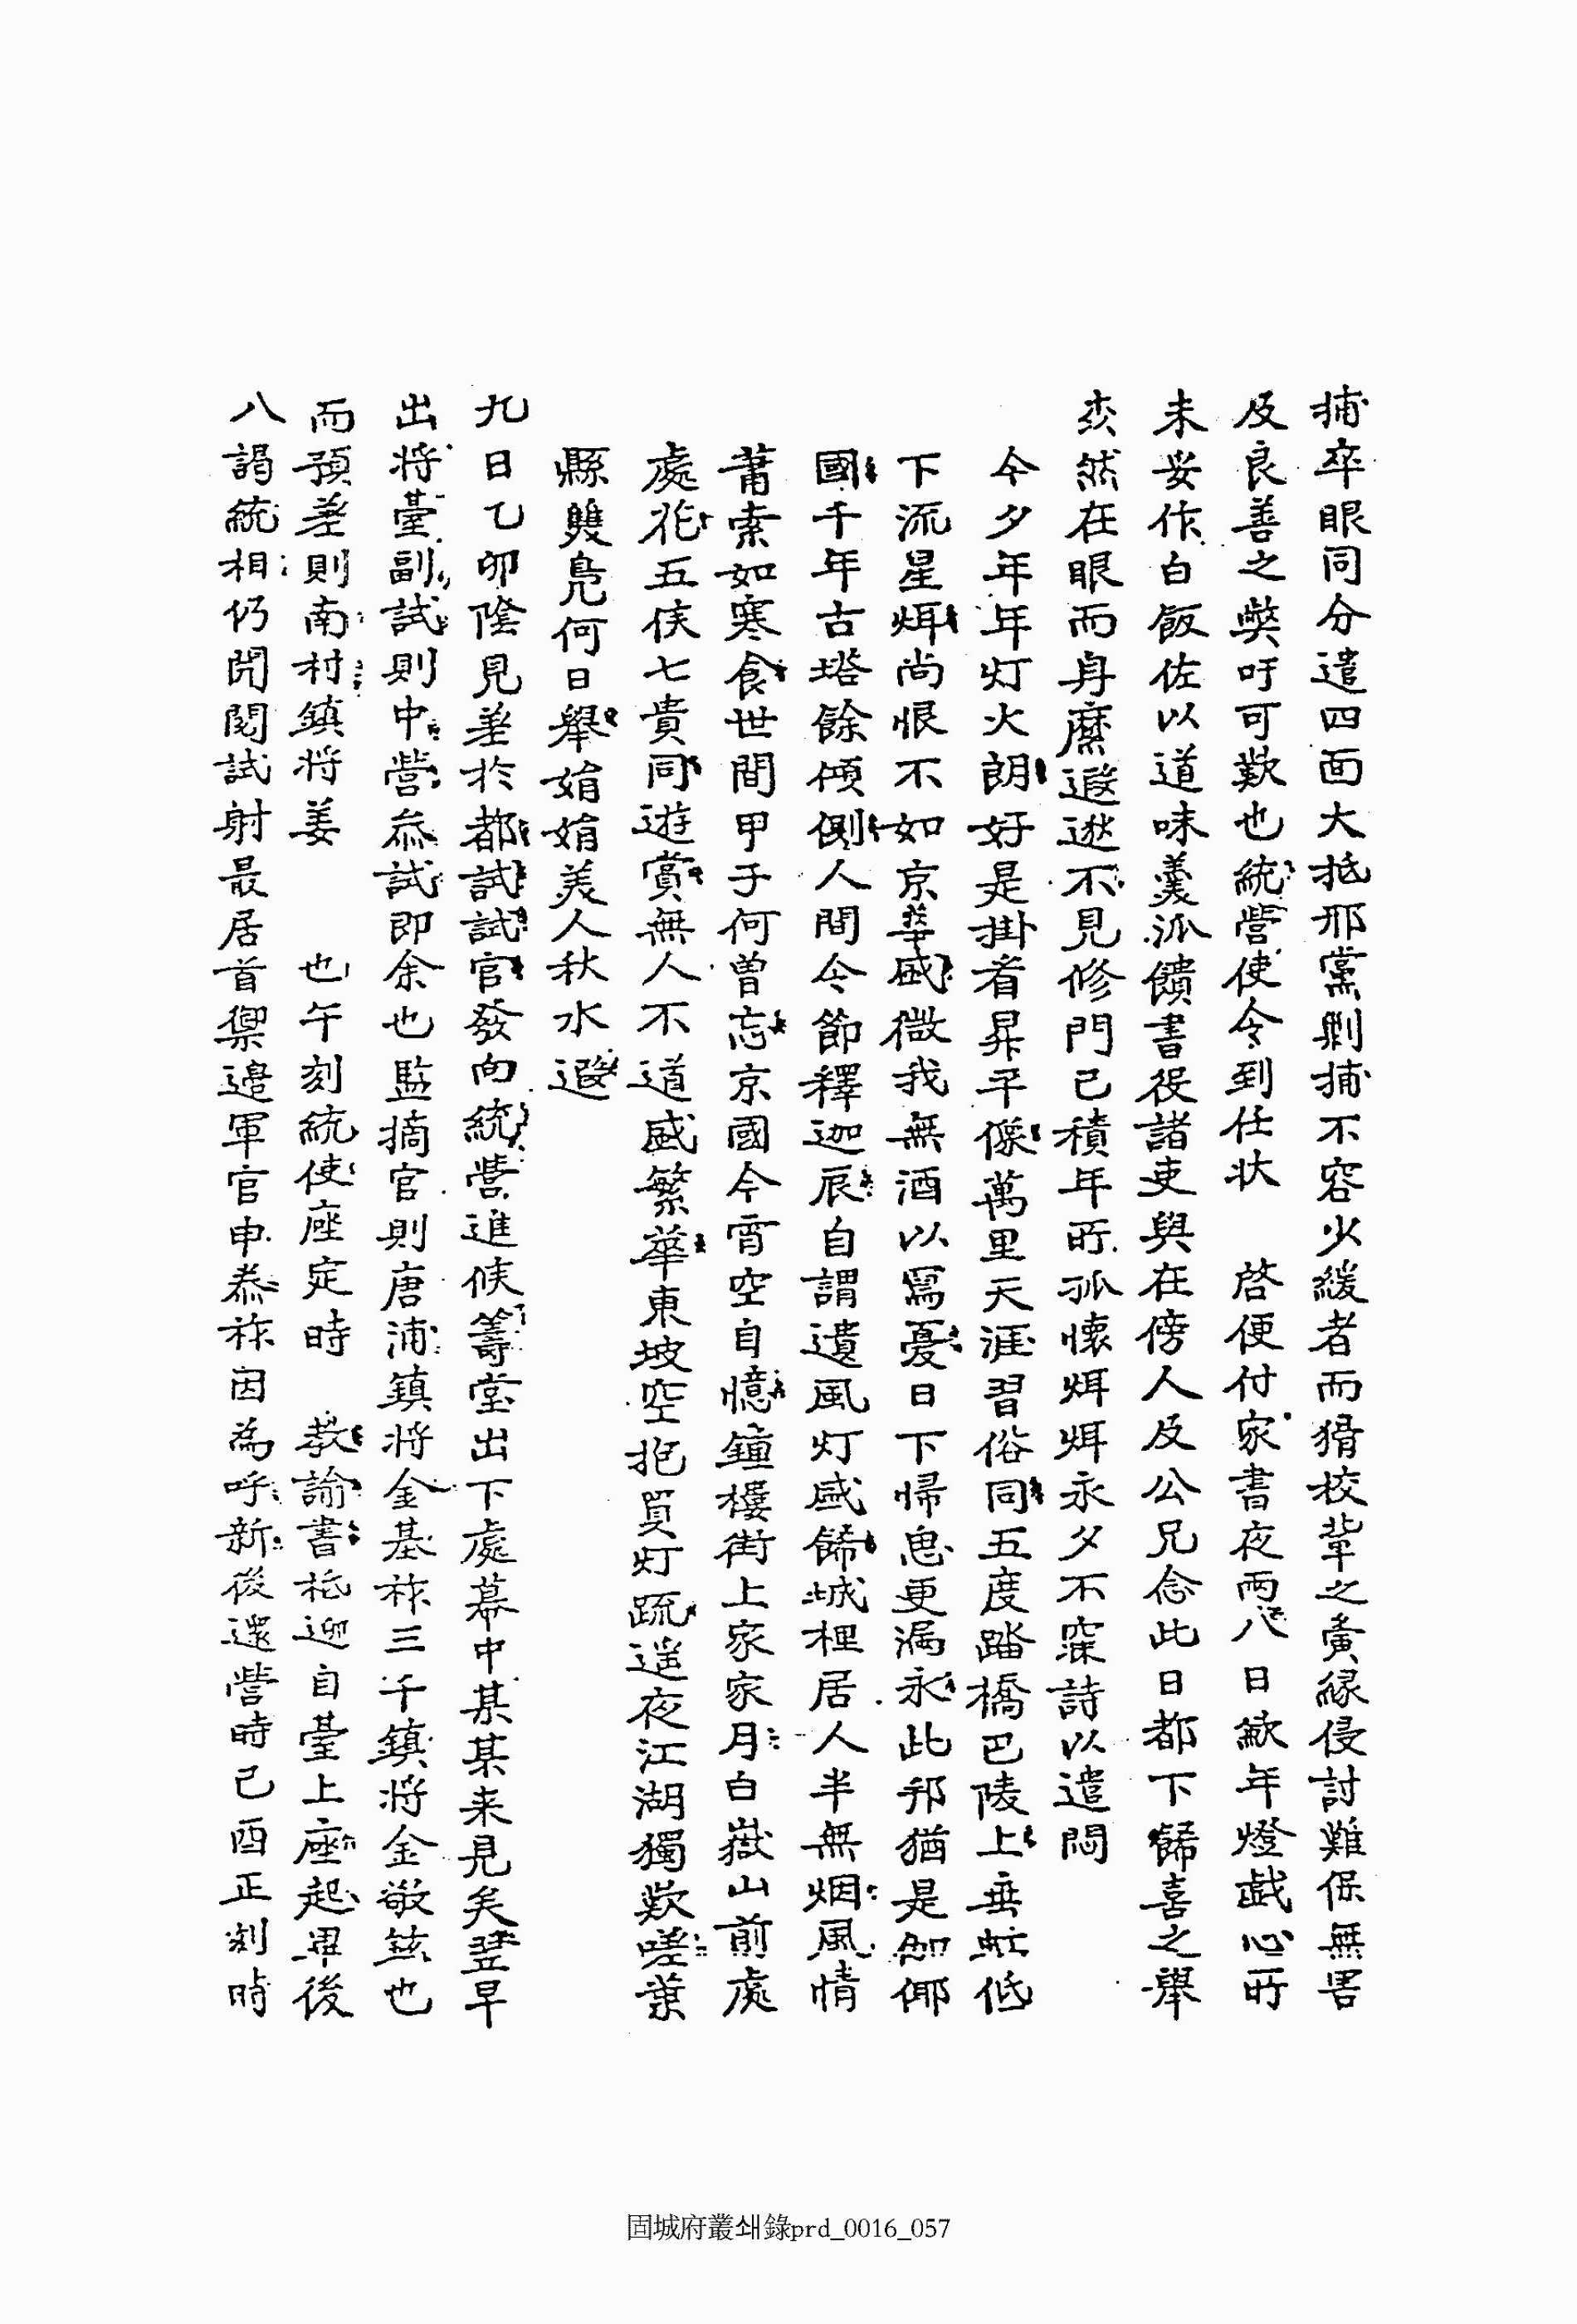 捕卒眼同分遣四面大抵邪黨剿捕不容少緩者而猾校輩之夤緣侵討難保無害
及良善之獘吁可歎也統營使令到任狀 啓便付家書夜雨八日歉年燈戱心所
未妥作白飯佐以道味羹派饋書役諸吏與在傍人及公兄念此日都下餙喜之擧
炎然在眼而身縻遐逖不見修門已積年所孤懷烱烱永夕不寐詩以遣悶
今夕年年灯火朗好是掛看昇平像萬里天涯習俗同五度踏橋巴陵上垂虹低
下流星烱尙恨不如京華盛微我無酒以寫憂日下帰思更漏永此邦猶是伽倻
國千年古塔餘傾側人間令節釋迦辰自謂遺風灯盛餙城裡居人半無烟風情
蕭索如寒食世間甲子何曾忘京國今宵空自憶鐘樓街上家家月白嶽山前處
處花五侯七貴同遊賞無人不道盛繁華東坡空抱買灯疏遥夜江湖獨歎嗟葉
縣雙鳧何日擧娟娟美人秋水遐
九日乙卯陰見差於都試試官發向統營進候籌堂出下處幕中某某来見矣翌早
出將臺副試則中營叅試即余也監摘官則唐浦鎮將金基祚三千鎮將金敬鉉也
而預差則南村鎮將姜 也午刻統使座定時 教諭書祗迎自臺上座起畢後
八謁統相仍閱閱試射最居首禦邊軍官申泰祚因為呼新後還營時已酉正剡時